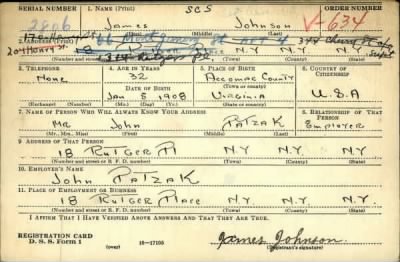 SERIAL NUMBER 1. NAME (Print) SCS ORDER NUMBER
2806 James Johnson V-634
(First) (Middle) (Last)
N.Y. N.Y. N.Y.
(Number and street or R. F. D. number) (Town) (County) (State)
3. TELEPHONE 4. AGE IN YEARS 5. PLACE OF BIRTH 6. COUNTRY OF CITIZENSHIP
None 32 Accomac County
DATE OF BIRTH (Town or county)
Jan 5 1908 Virginia U.S.A
(Exchange) (Number) (Mo.) (Day) (Yr.) (State or country)
7. NAME OF PERSON WHO WILL ALWAYS KNOW YOUR ADDRESS 8. RELATIONSHIP OF THAT PERSON
Mr John Patzak Employer
(Mr., Mrs., Miss) (First) (Middle) (Last)
9. ADDRESS OF THAT PERSON
18 Rutger Pl N.Y. N.Y. N.Y.
(Number and street or R. F. D. number) (Town) (County) (State)
10. EMPLOYER'S NAME
John Patzak
11. PLACE OF EMPLOYMENT OR BUSINESS
18 Rutger Place N.Y. N.Y. N.Y.
(Number and street or R. F. D. number) (Town) (County) (State)
I AFFIRM THAT I HAVE VERIFIED ABOVE ANSWERS AND THAT THEY ARE TRUE.
REGISTRATION CARD
D. S. S. Form 1 (over) 16—17105 James Johnson
(Registrant's signature)